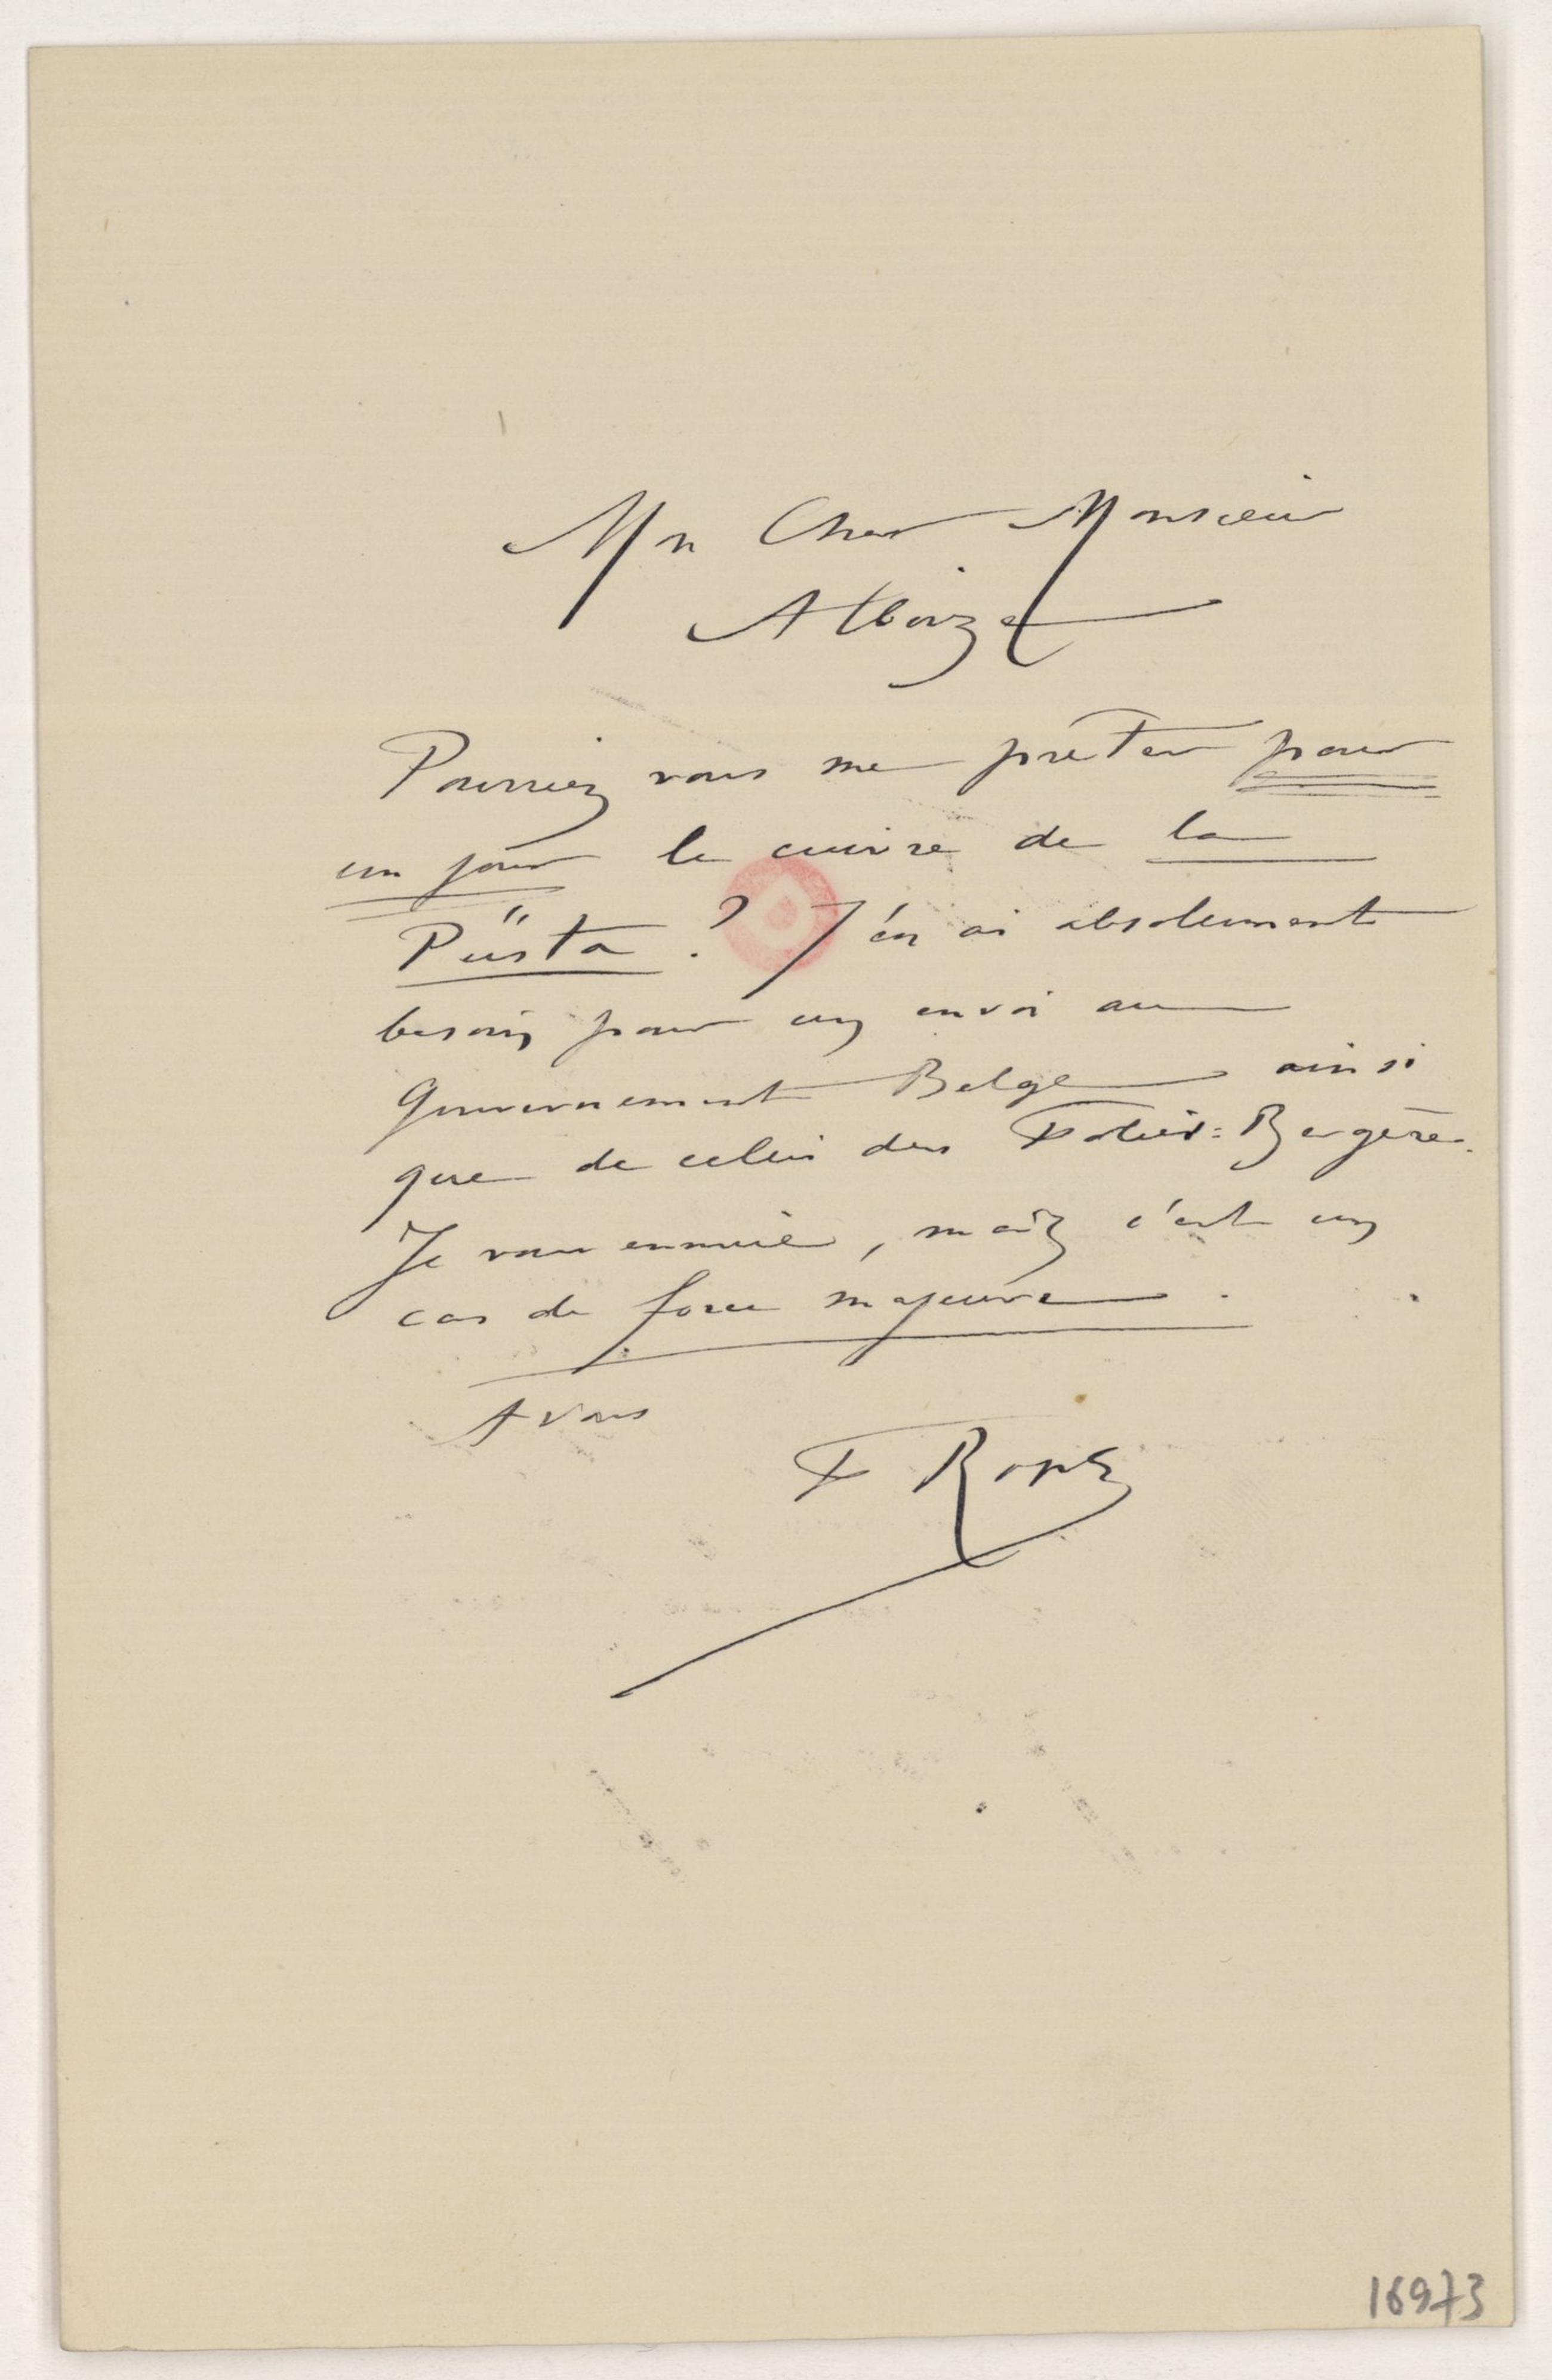 Mn Cher Monsieur
Alboize
Pourriez vous me prêter pour
un jour le cuivre de la
Püsta ? J'én ai absolument
besoin pour un envoi au
Gouvernement Belge ainsi
que de celui des Folies=Bergère.
Je vous ennuie, mais c'est un
cas de force majeure.
A vous
F Rops
16973